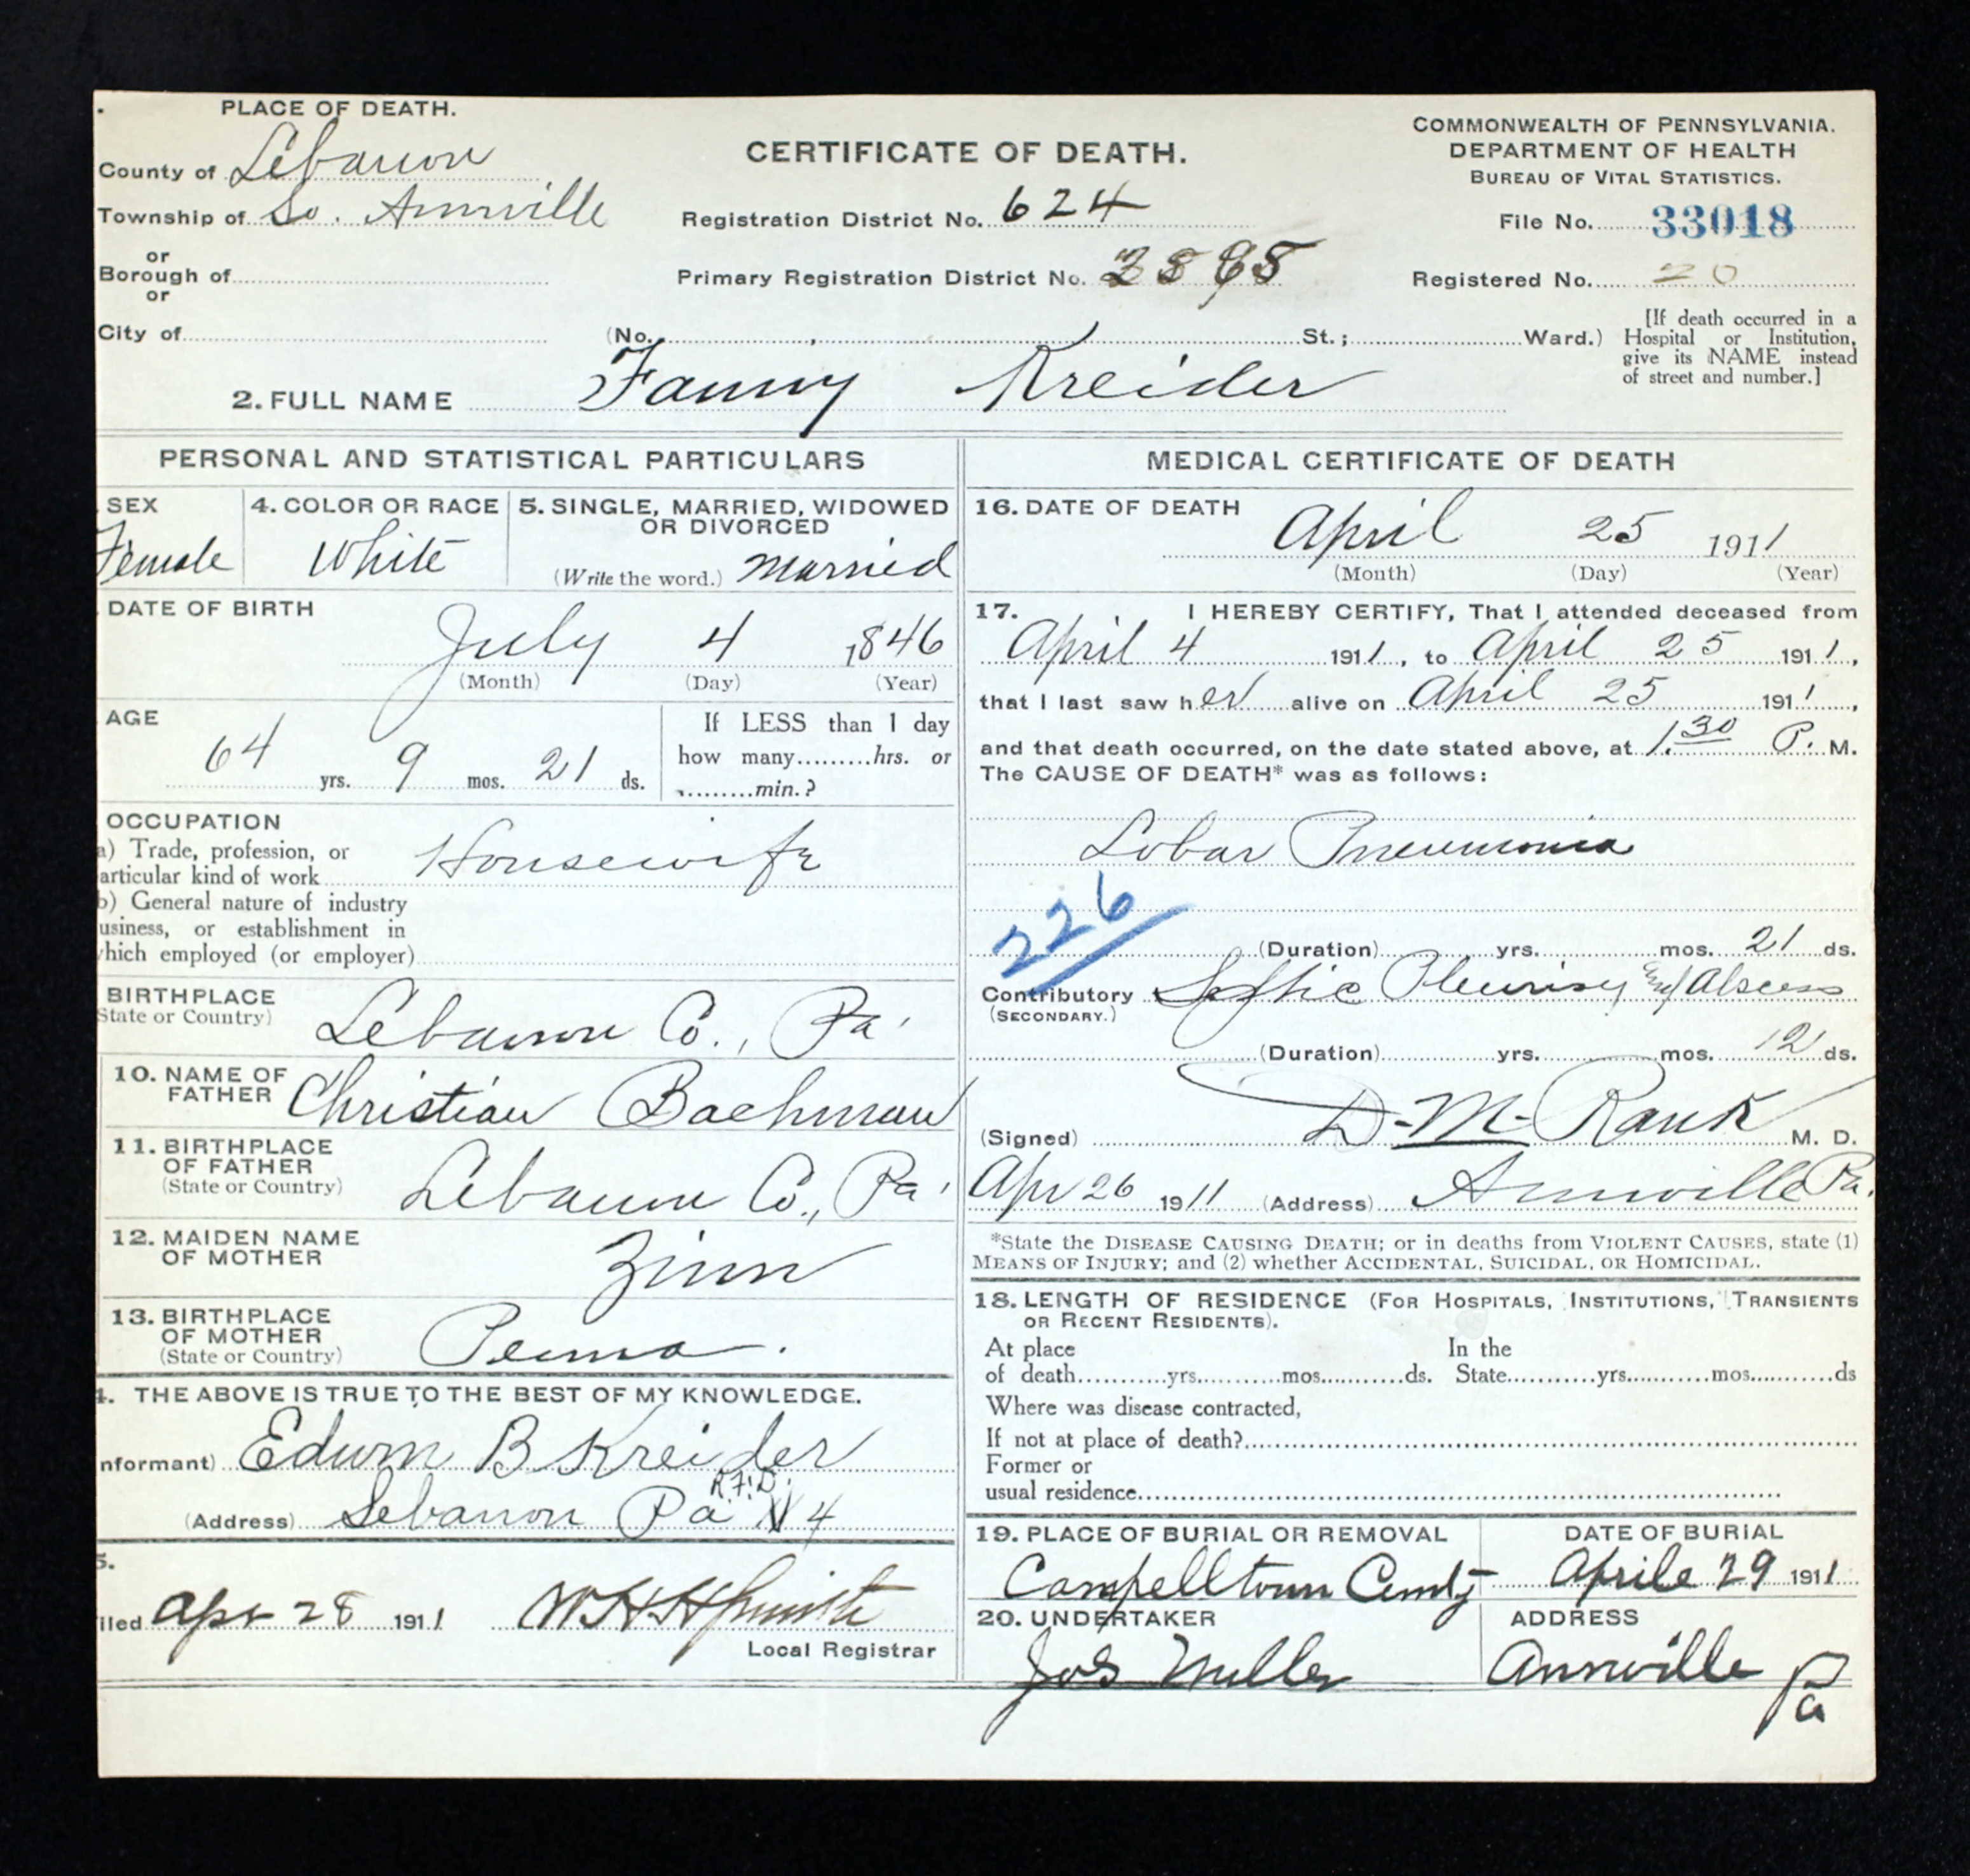 PLACE OF DEATH.
County of Lebanon
Township of So. Annville
or
Borough of
or
City of
CERTIFICATE OF DEATH.
Registration District No. 624
Primary Registration District No.
(No. , St.; Ward.)
COMMONWEALTH OF PENNSYLVANIA.
DEPARTMENT OF HEALTH
BUREAU OF VITAL STATISTICS.
File No. 33018
Registered No. 20
[If death occurred in a
Hospital or Institution,
give its NAME instead
of street and number.]
2. FULL NAME Fanny Kreider
PERSONAL AND STATISTICAL PARTICULARS
SEX
Female
4. COLOR OR RACE
White
5. SINGLE, MARRIED, WIDOWED
OR DIVORCED
(Write the word.) Married
DATE OF BIRTH
July 4 1846
(Month) (Day) (Year)
AGE
64 yrs. 9 mos. 21 ds.
If LESS than 1 day
how many hrs. or
min.?
OCCUPATION
a) Trade, profession, or
articular kind of work Housewife
b) General nature of industry
usiness, or establishment in
hich employed (or employer)
BIRTHPLACE
State or Country)
Lebanon Co., Pa.
10. NAME OF
FATHER Christian Bachman
11. BIRTHPLACE
OF FATHER
(State or Country)
Lebanon Co., Pa.
12. MAIDEN NAME
OF MOTHER
Zinn
13. BIRTHPLACE
OF MOTHER
(State or Country)
Penna.
4. THE ABOVE IS TRUE TO THE BEST OF MY KNOWLEDGE.
nformant) Edwin B Kreider
R.F.D.
(Address) Lebanon Pa N 4
5.
iled Apr 28 1911
Local Registrar
MEDICAL CERTIFICATE OF DEATH
16. DATE OF DEATH
April 25 1911
(Month) (Day) (Year)
17. I HEREBY CERTIFY, That I attended deceased from
April 4 1911, to April 25 1911,
that I last saw her alive on April 25 1911,
and that death occurred, on the date stated above, at 1.30 P. M.
The CAUSE OF DEATH* was as follows:
Lobar Pneumonia
226
(Duration) yrs. mos. 21 ds.
Contributory Septic Pleurisy and Abscess
(SECONDARY.)
(Duration) yrs. mos. 12 ds.
(Signed) D. M. Rank M. D.
Apr 26 1911 (Address) Annville Pa.
*State the DISEASE CAUSING DEATH; or in deaths from VIOLENT CAUSES, state (1)
MEANS OF INJURY; and (2) whether ACCIDENTAL, SUICIDAL, OR HOMICIDAL.
18. LENGTH OF RESIDENCE (FOR HOSPITALS, INSTITUTIONS, TRANSIENTS
OR RECENT RESIDENTS).
At place In the
of death yrs. mos. ds. State yrs. mos. ds
Where was disease contracted,
If not at place of death?
Former or
usual residence
19. PLACE OF BURIAL OR REMOVAL
Campelltown
DATE OF BURIAL
Aprile 29 1911
20. UNDERTAKER
Jos Miller
ADDRESS
Annville Pa